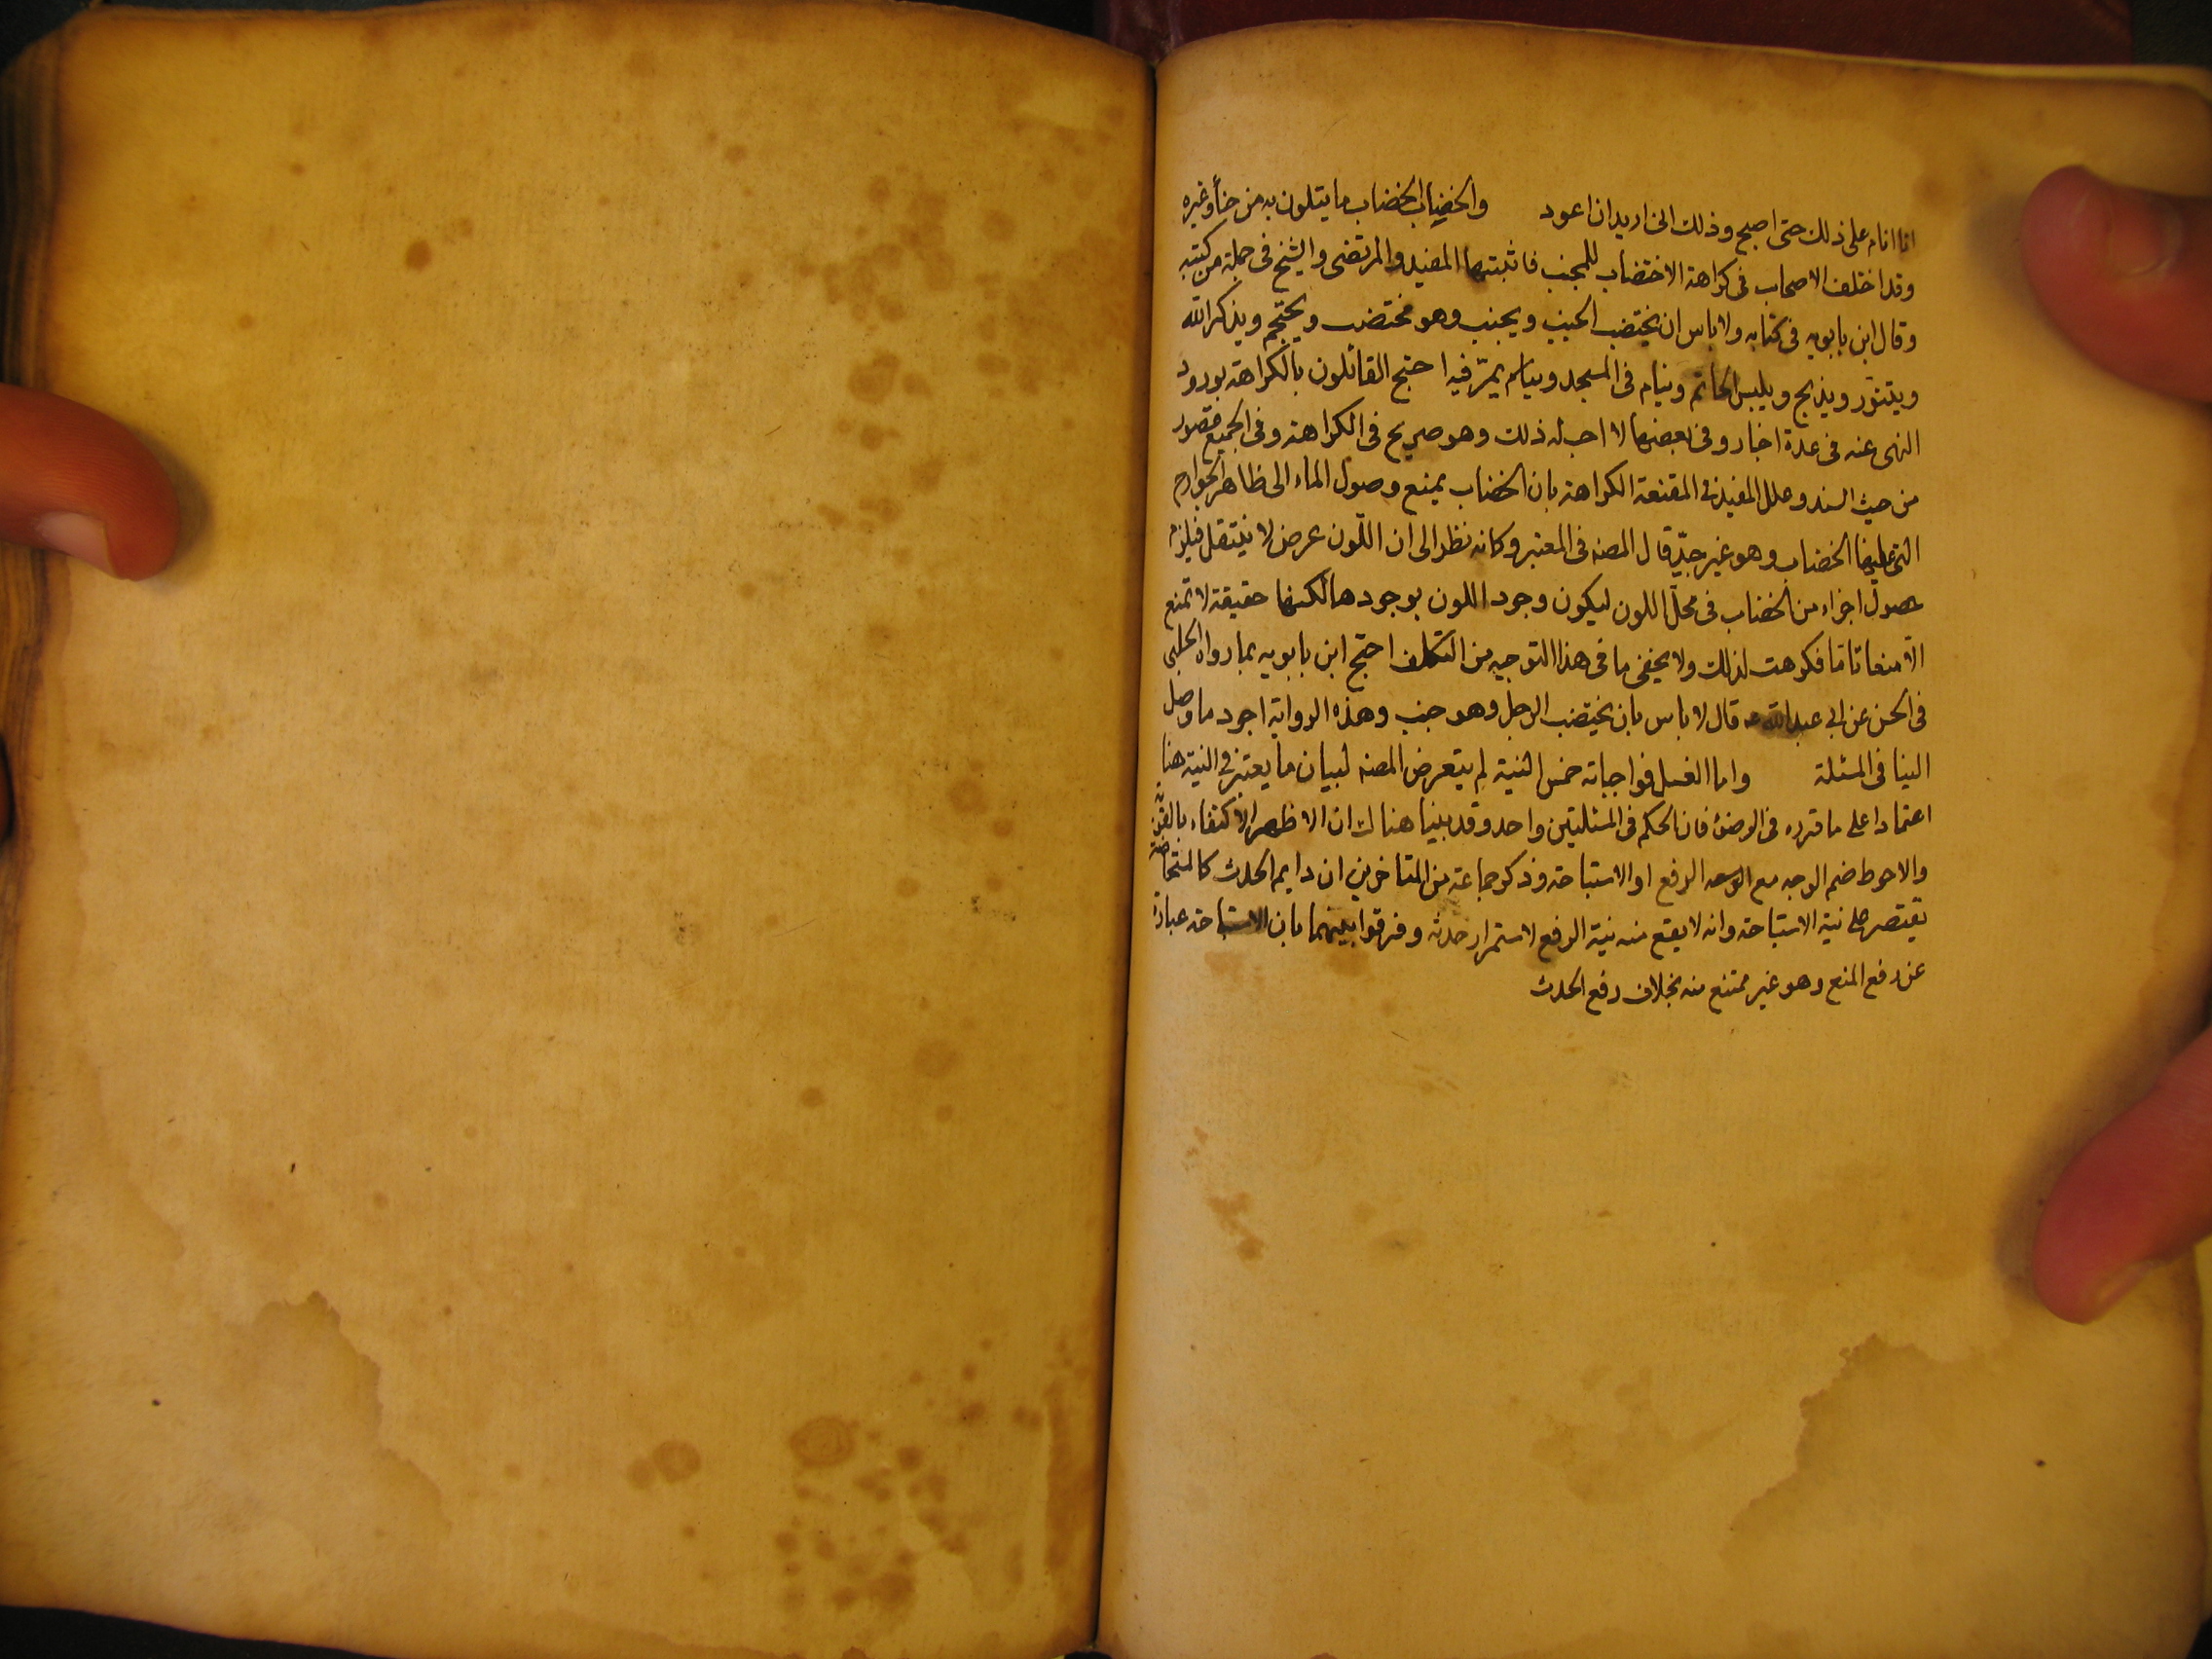 انا انام على ذلك حتى اصبح وذلك انى اريد ان اعود والخضاب الخضاب ما يتلون به من حناء وغيره
وقد اختلف الاصحاب فى كراهة الاختضاب للجنب فاثبتها المفيد والمرتضى والشيخ فى جملة من كتبه
وقال ابن بابويه فى كتابه ولا باس ان يختضب الجنب ويجنب وهو مختضب ويحتجم ويذكر الله
ويتنور ويذبح ويلبس الخاتم وينام فى المسجد ويمر فيه احتج القائلون بالكراهة بورود
النهى عنه فى عدة اخبار وفى بعضها لا احب له ذلك وهو صريح فى الكراهة وفى الجميع قصور
من حيث السند وعلل المفيد فى المقنعة الكراهة بان الخضاب يمنع وصول الماء الى ظاهر الجوارح
التى عليها الخضاب وهو غير جيد قال المصنه فى المعتبر وكانه نظر الى ان اللون عرض لا ينتقل فيلزم
حصول اجزاء من الخضاب فى محل اللون ليكون وجود اللون بوجودها لكنها حقيقة لا تمنع
الا منعا تاما فكرهت لذلك ولا يخفى ما فى هذا التوجيه من التكلف احتج ابن بابويه بما رواه الحلبى
فى الحسن عن ابى عبد الله ع قال لا باس بان يختضب الرجل وهو جنب وهذه الرواية اجود ما وصل
الينا فى المسئلة واما الغسل فواجباته خمس النية لم يتعرض المصنه لبيان ما يعتبر فى النية هنا
اعتمادا على ما قرره فى الوضوء فان الحكم فى المسئلتين واحد وقد بينا هناك ان الاظهر الاكتفاء بالقربة
والاحوط ضم الوجه مع الوجه الرفع او الاستباحة وذكر جماعة من المتاخرين ان دايم الحدث كالمستحاضة
تقتصر على نية الاستباحة وانه لا يقع منه نية الرفع لاستمرار حدثه وفرقوا بينهما بان الاستباحة عبارة
عن رفع المنع وهو غير ممتنع منه بخلاف رفع الحدث